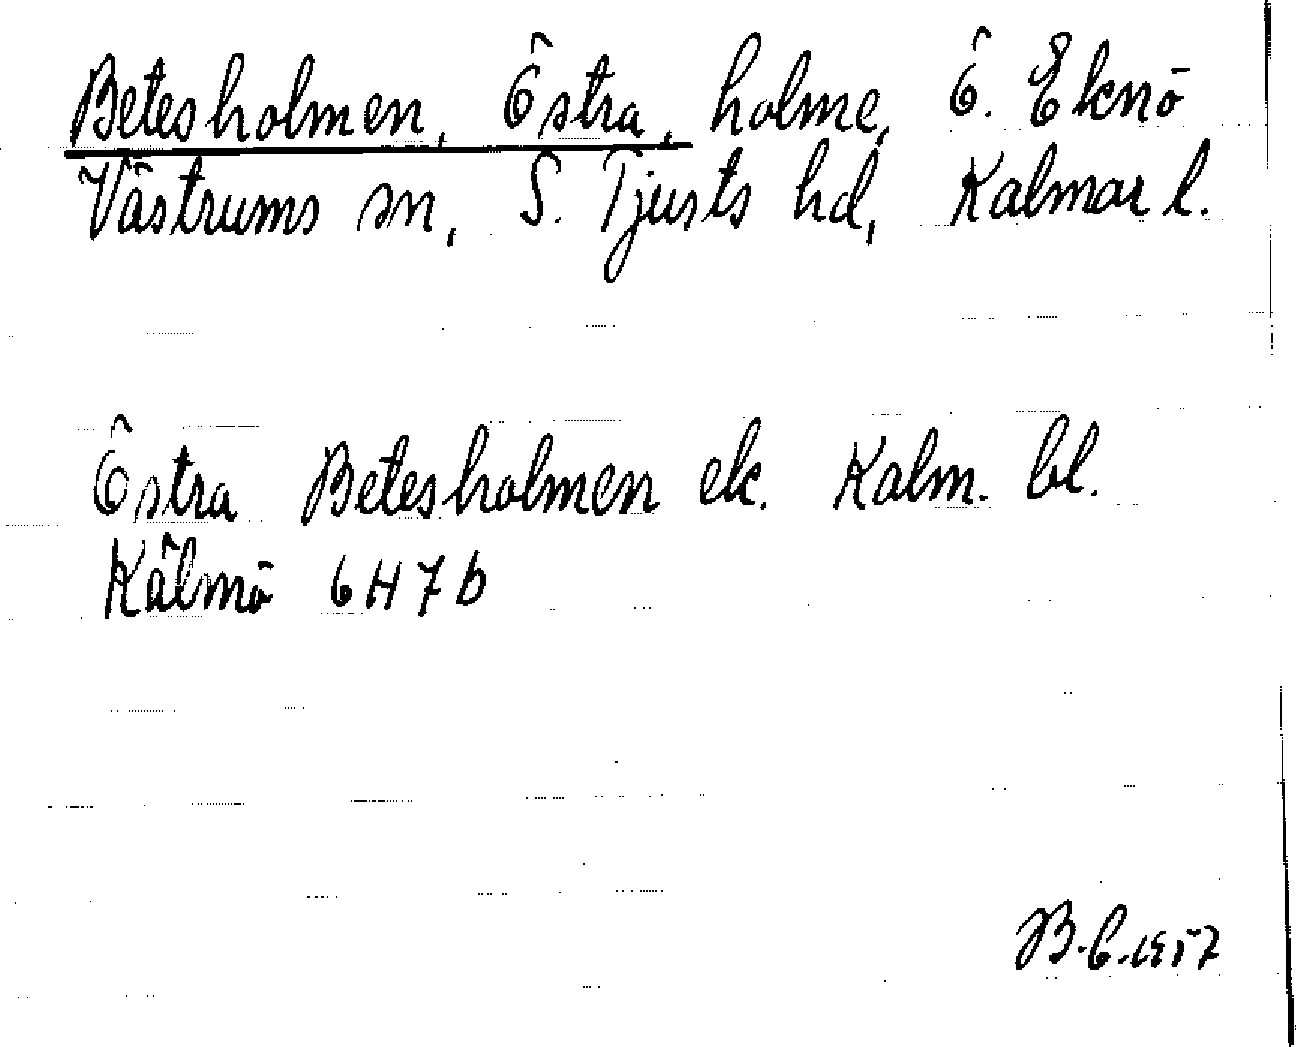 Betesholmen, Östra, holme, Ö. Eknö
Västrums sn, S. Tjusts hd, Kalmar l.
Östra Betesholmen ek. Kalm. bl.
Kålmö 6H7b
B.C. 1957